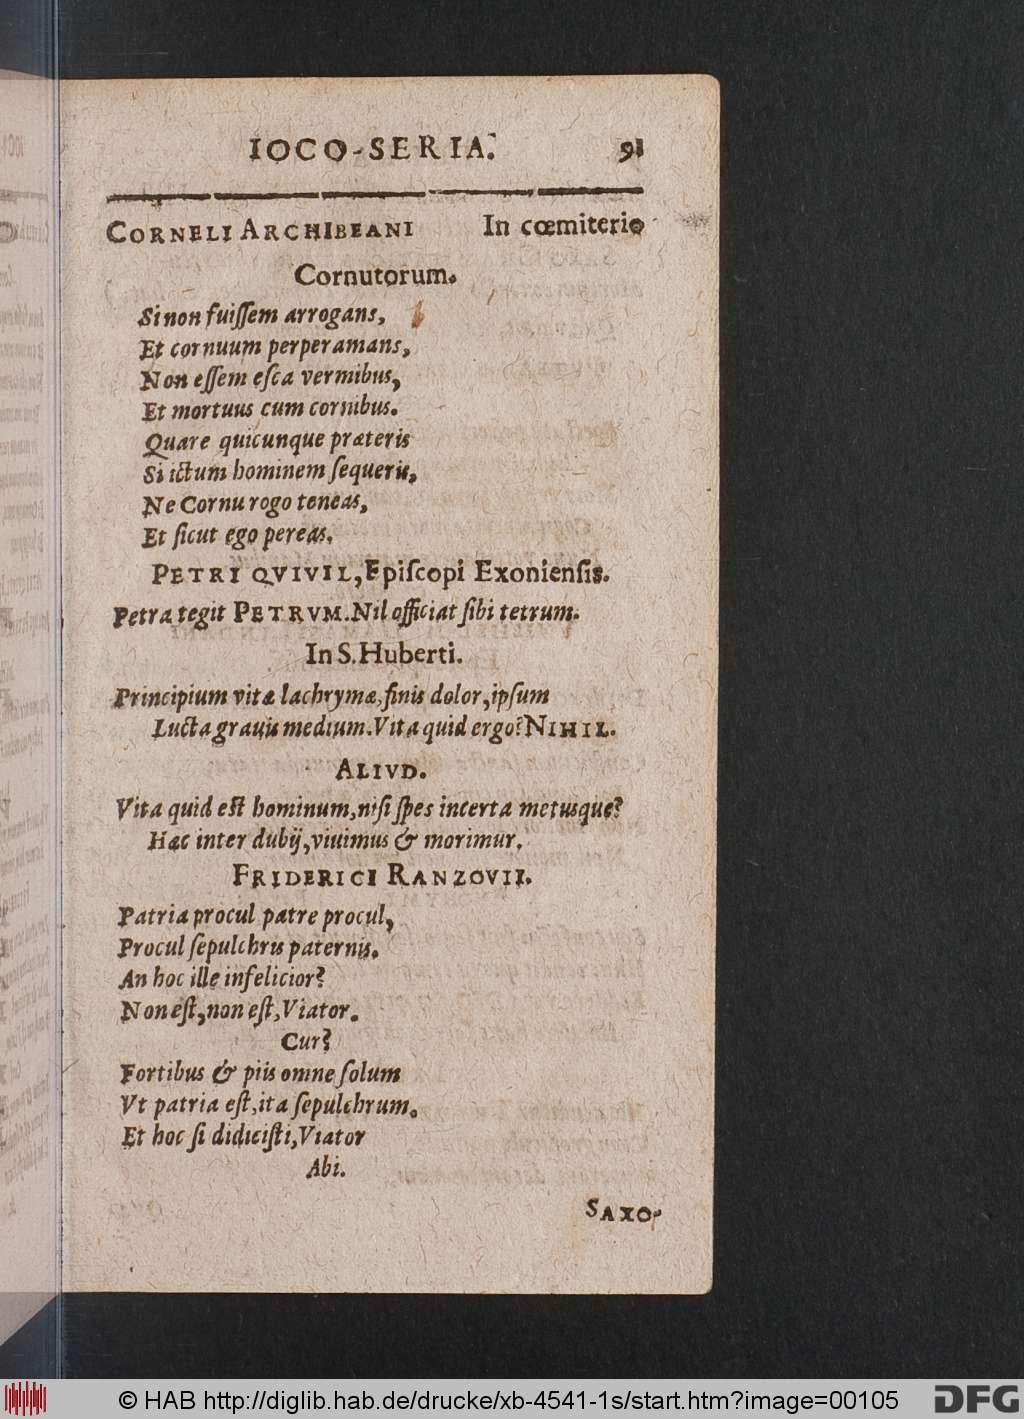 IOCO-SERIA. 91
CORNELI ARCHIBEANI In cœmiterio
Cornutorum.
Si non fuiſſem arrogans,
Et cornuum perperamans,
Non eſſem eſca vermibus,
Et mortuus cum cornibus.
Quare quicunque præteris
Si ictum hominem ſequeris,
Ne Cornu rogo teneas,
Et ſicut ego pereas.
PETRI QVIVIL, Epiſcopi Exonienſis.
Petra tegit PETRVM. Nil officiat ſibi tetrum.
In S. Huberti.
Principium vitæ lachrymæ, finis dolor, ipſum
Lucta grauis medium. Vita quid ergo? NIHIL.
ALIVD.
Vita quid eſt hominum, niſi ſpes incerta metusque?
Hæc inter dubij, viuimus & morimur.
FRIDERICI RANZOVII.
Patria procul patre procul,
Procul ſepulchris paternis.
An hoc ille infelicior?
Non eſt, non eſt, Viator.
Cur?
Fortibus & piis omne ſolum
Vt patria eſt, ita ſepulchrum.
Et hoc ſi didiciſti, Viator
Abi.
SAXO-
© HAB http://diglib.hab.de/drucke/xb-4541-1s/start.htm?image=00105
DFG